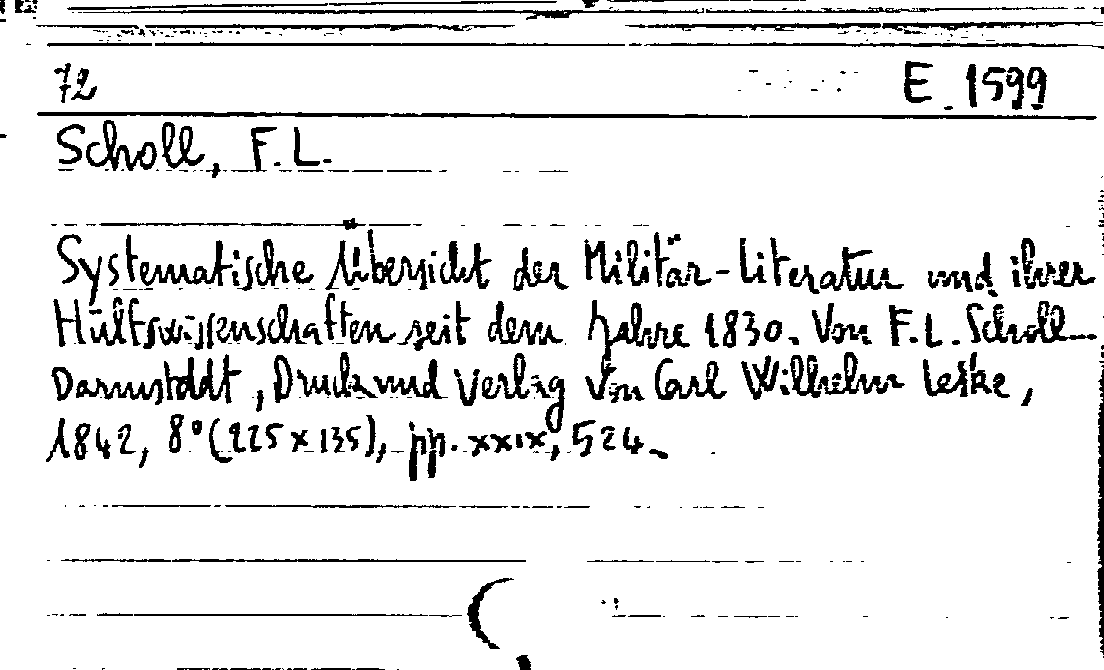 72 E. 1599
Scholl, F. L.
Systematische Übersicht der Militär-Literatur und ihrer
Hülfswissenschaften seit dem Jahre 1830. Von F. L. Scholl.-
Darmstddt, Druck und Verlag von Carl Wilhelm Leske,
1842, 8° (225 x 135), pp. xxix, 524.